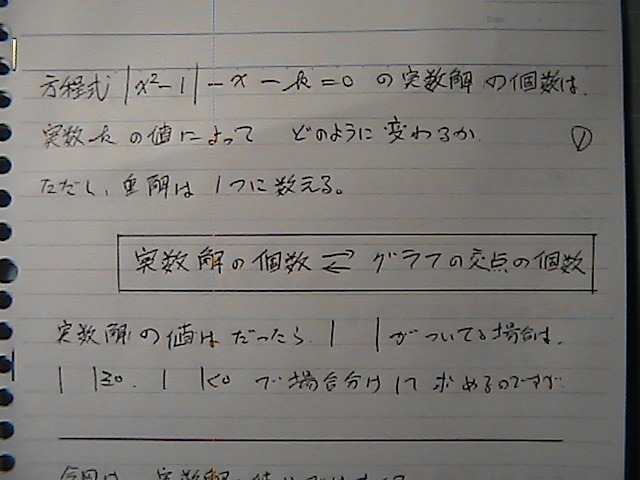 方程式 |x²-1|-x-k=0 の実数解の個数は、
実数kの値によって どのように変わるか. ①
ただし、重解は1つに数える。
実数解の個数 ⇄ グラフの交点の個数
実数解の値はだったら、| |がついてる場合は、
| |≧0. | |<0 で場合分けして求めるのですが
今回は、実数解の